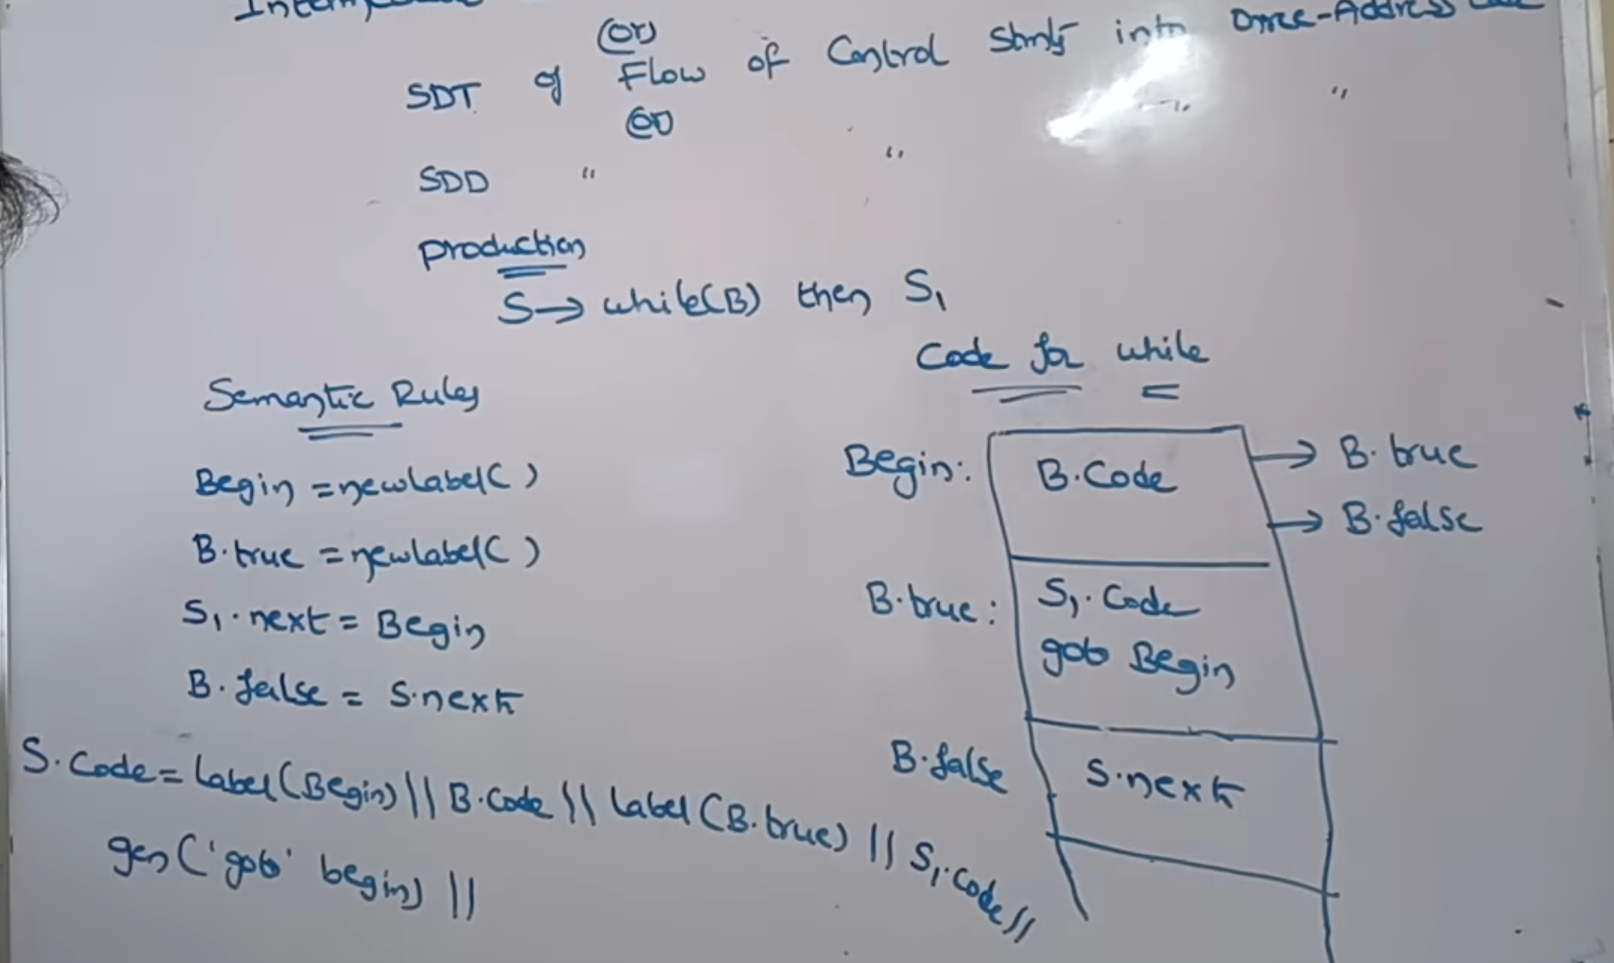 (or)
SDT of Flow of Control Stmts into Three-Address
(or)
SDD " " " "
production
S → while(B) then S1
Code for while
Semantic Rules
Begin = newlabel( )
B.true = newlabel( )
S1.next = Begin
B.false = S.next
S.Code = Label(Begin) || B.Code || Label(B.true) || S1.Code ||
gen('goto' begin) ||
Begin: B.Code → B.true
→ B.false
B.true: S1.Code
goto Begin
B.false S.next